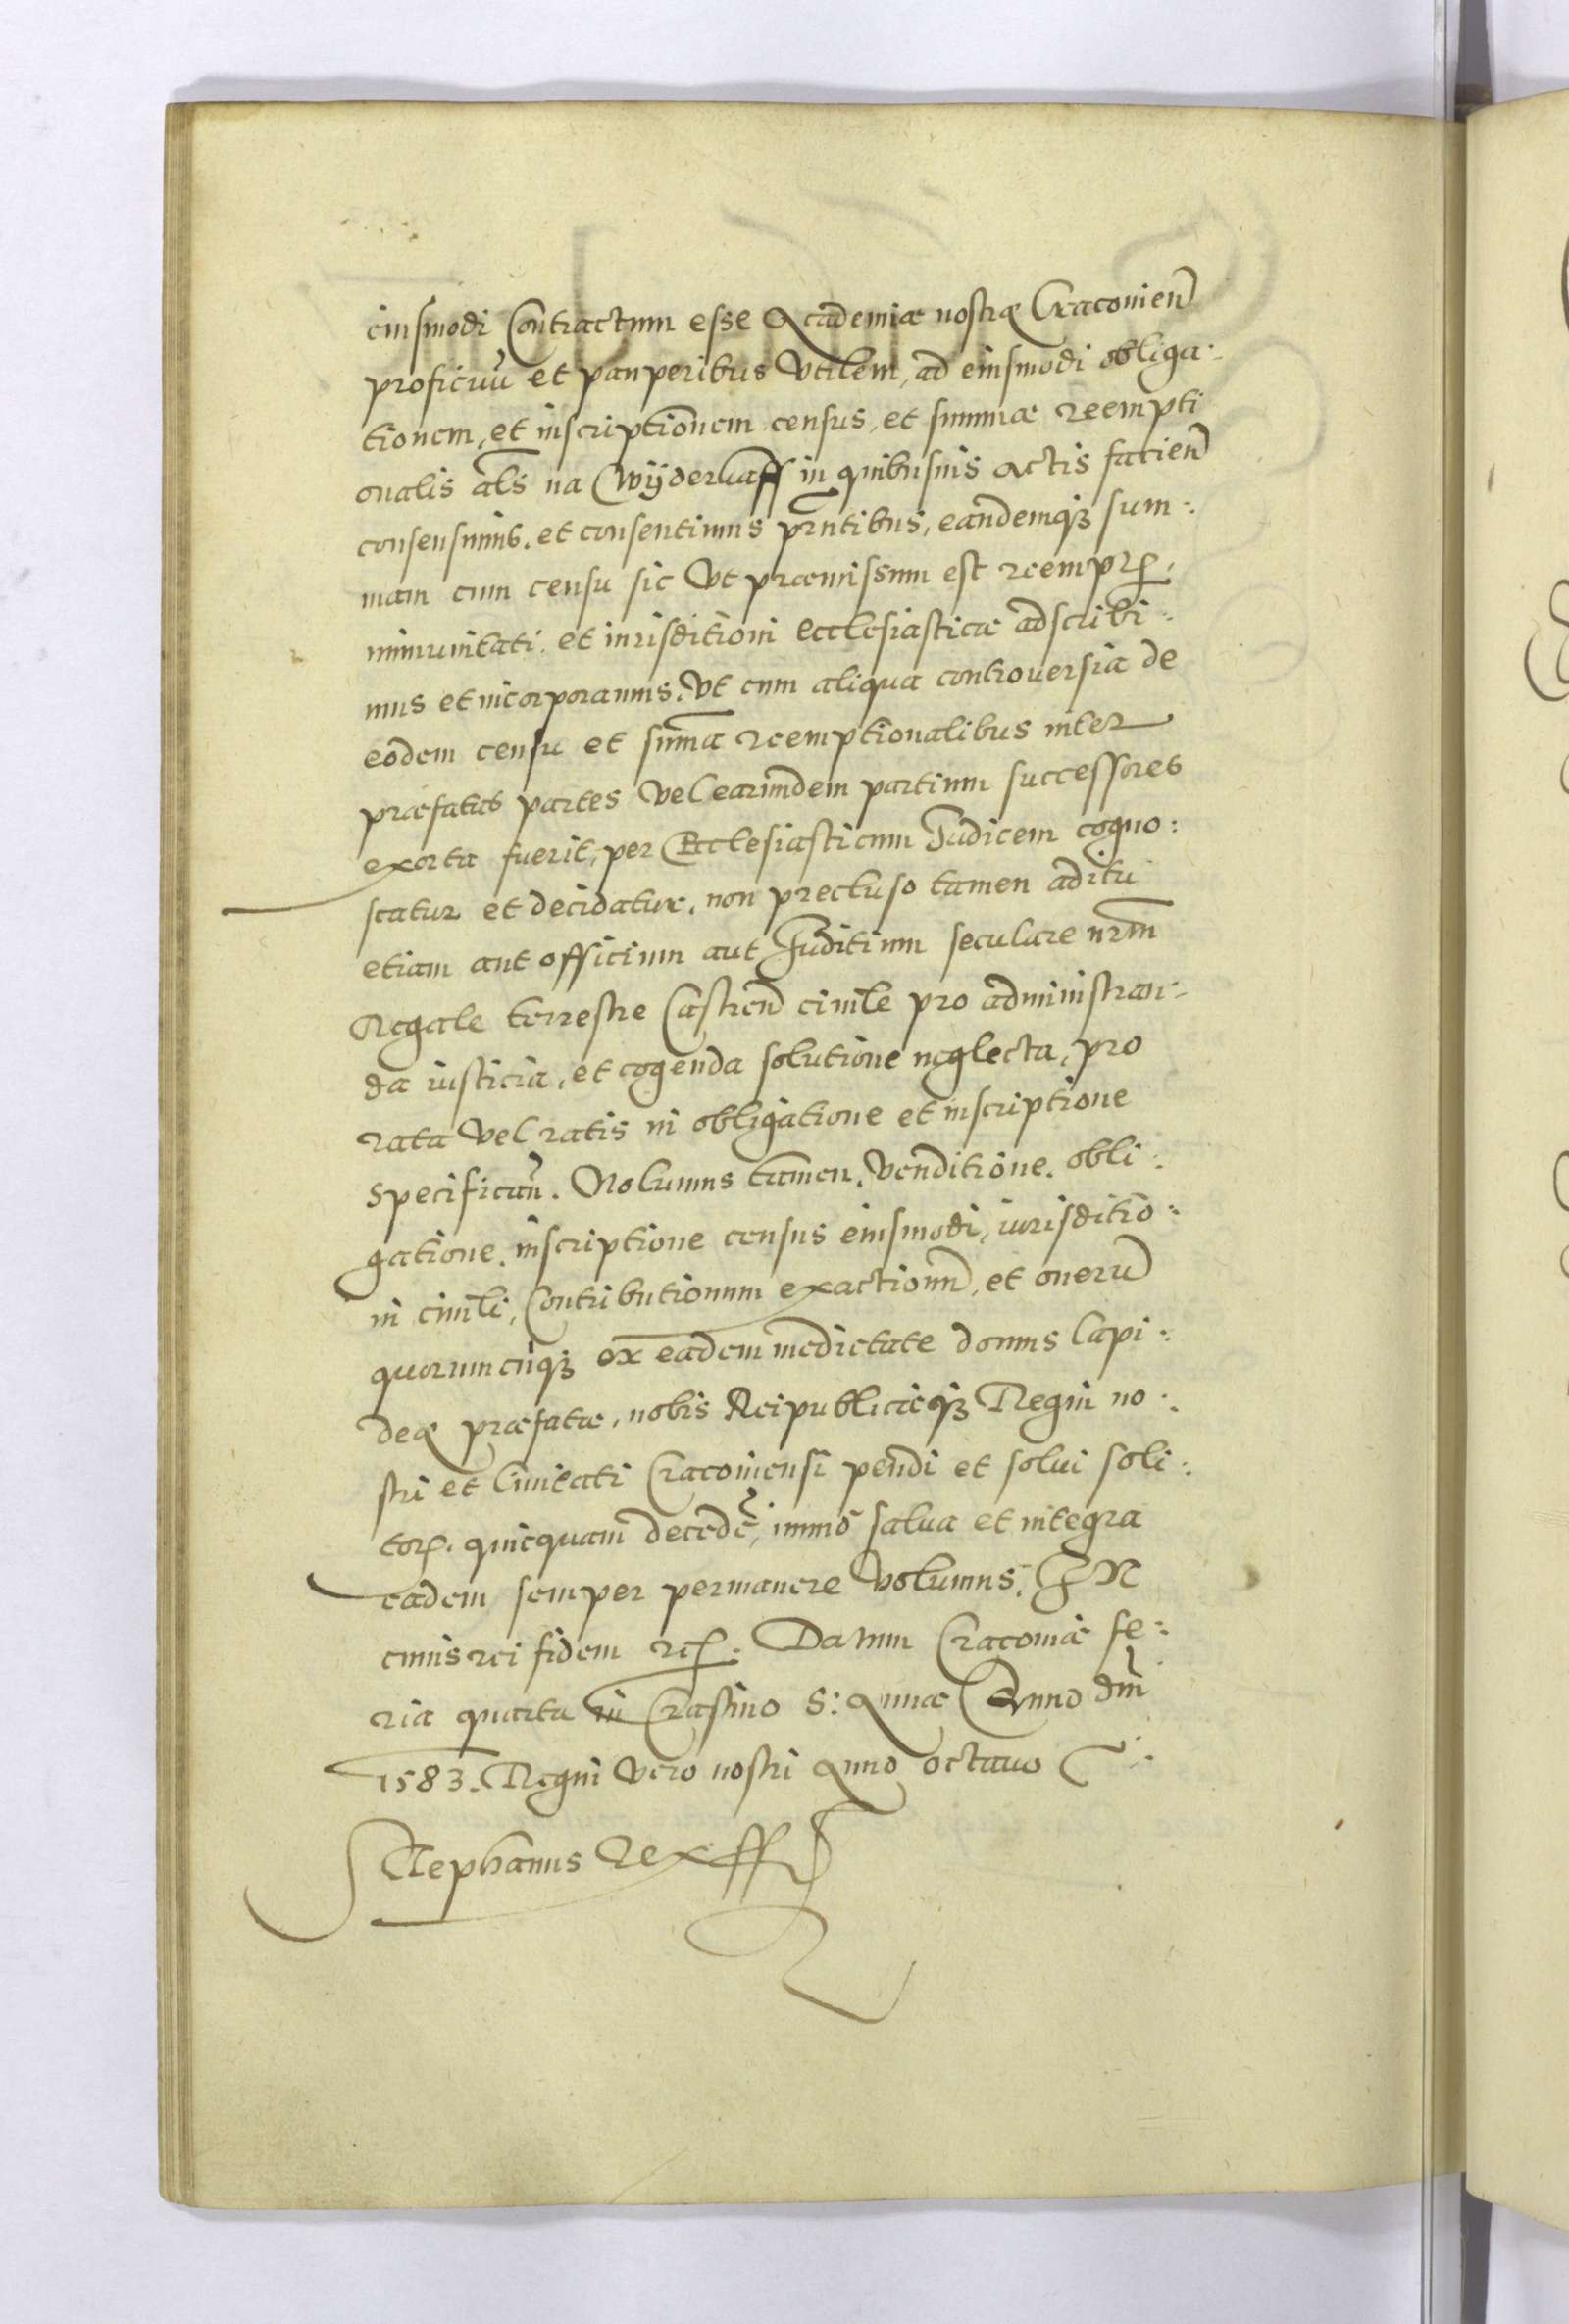 eiusmodi Contractum esse Academiæ nostræ Cracovien̄
proficuū et pauperibus vtilem, ad eiusmodi obliga-
tionem, et inscriptionem census, et summæ reempti
onalis als̄ na Wÿderkaff in quibusuis actis facien̄
consensimus. et consentimus pñtibus, eandemqꝫ sum:
mam cum censu sic vt præmissum est reemptꝝ,
immunitati. et iurisditioni Ecclesiasticæ adscribi:
mus et incorporamus. Vt cum aliqua controuersia de
eodem censu et sum̄a reemptionalibus inter
præfatas partes vel earumdem partium successores
exorta fuerit, per Ecclesiasticum Iudicem cogno:
scatur et decidatur. non precluso tamen aditu
etiam ant officium aut Iuditium seculare nr̄m
Regale terrestre Castren̄ ciuile pro administran:
da iusticia, et cogenda solutione neglecta, pro
rata vel ratis in obligatione et inscriptione
specifican̄. Nolumus tamen. venditione. obli:
gatione. inscriptione census eiusmodi, iurisditio:
ni ciuili, Contributionum exactionū, et onerū
quorumcūqꝫ ex eadem medietate domus lapi:
deæ præfatæ, nobis Reipublicæqꝫ Regni no:
stri et Ciuitati Cracouiensi pendi et solui soli:
torꝝ. quicquam decede͛, immo salua et integra
eadem semper permanere volumus. IN
cuius rei fidem rc̄. Datum Cracouiæ fe:
ria quarta in Crastino S: Annæ Anno dni̅
1583. Regni vero nostri Anno octauo
Stephanus Rex ss